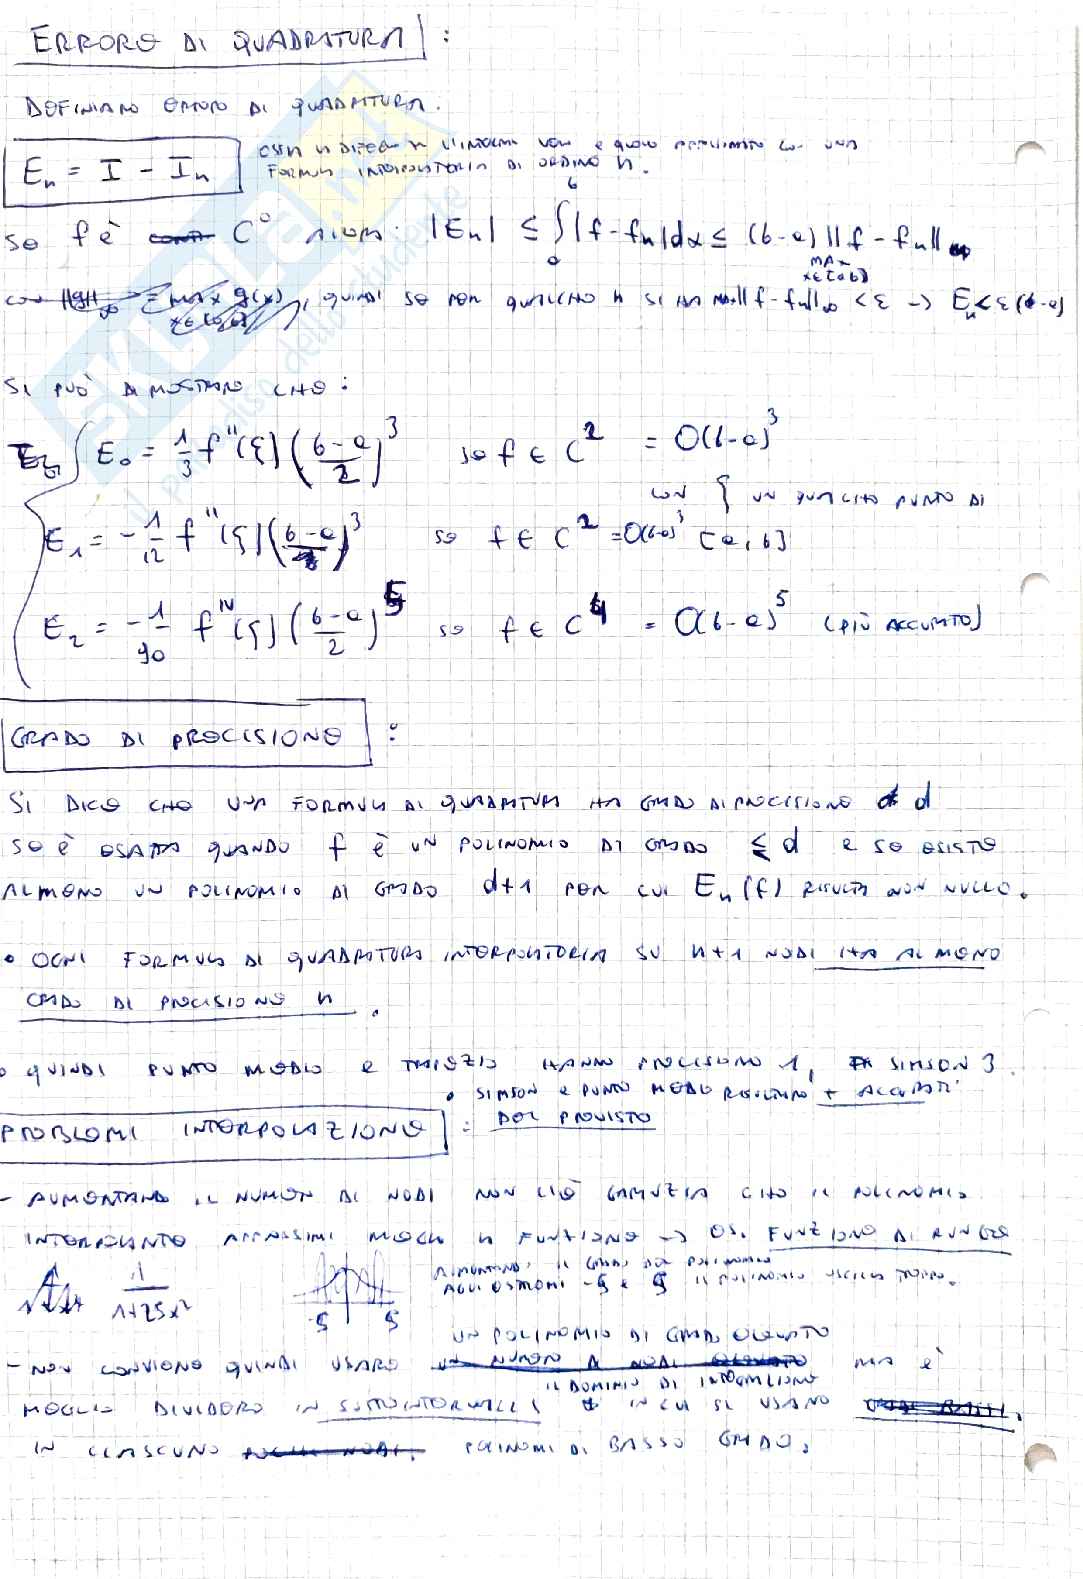 ERRORE DI QUADRATURA :
DEFINIAMO ERRORE DI QUADRATURA.
E_n = I - I_n
L'INTEGRALE VERO E QUELLO APPROSSIMATO CON UNA
FORMULA INTERPOLATORIA DI ORDINE n.
SE f È C^0 ALLORA: |E_n| ≤ ∫_a^b |f - f_n| dx ≤ (b-a) ||f - f_n||_∞
MAX x∈[a,b]
, QUINDI SE PER QUALCHE n SI HA ||f - f_n||_∞ < ε → E_n < ε (b-a)
SI PUÒ DIMOSTRARE CHE :
E_0 = 1/3 f''(ξ) ((b-a)/2)^3 SE f ∈ C^2 = O(b-a)^3
CON ξ UN QUALCHE PUNTO DI
E_1 = -1/12 f''(ξ) (b-a)^3 SE f ∈ C^2 = O(b-a)^3 [a,b]
E_2 = -1/90 f^IV(ξ) ((b-a)/2)^5 SE f ∈ C^4 = O(b-a)^5 (PIÙ ACCURATO)
GRADO DI PRECISIONE :
SI DICE CHE UNA FORMULA DI QUADRATURA HA GRADO DI PRECISIONE d
SE È ESATTA QUANDO f È UN POLINOMIO DI GRADO ≤ d E SE ESISTE
ALMENO UN POLINOMIO DI GRADO d+1 PER CUI E_n(f) RISULTA NON NULLO.
• OGNI FORMULA DI QUADRATURA INTERPOLATORIA SU n+1 NODI HA ALMENO
GRADO DI PRECISIONE n.
• QUINDI PUNTO MEDIO E TRAPEZIO HANNO PRECISIONE 1, SIMSON 3.
• SIMSON E PUNTO MEDIO RISULTANO + ACCURATI
DEL PREVISTO
PROBLEMI INTERPOLAZIONE :
- AUMENTANDO IL NUMERO DI NODI NON C'È GARANZIA CHE IL POLINOMIO
INTERPOLANTE APPROSSIMI MEGLIO LA FUNZIONE → ES. FUNZIONE DI RUNGE
1/(1+25x^2)
AUMENTANDO IL GRADO DEL POLINOMIO
AGLI ESTREMI -5 E 5 IL POLINOMIO OSCILLA TROPPO.
-5 5
UN POLINOMIO DI GRADO ELEVATO
- NON CONVIENE QUINDI USARE UN NUMERO DI NODI ELEVATO MA È
IL DOMINIO DI INTEGRAZIONE
MEGLIO DIVIDERE IN SOTTOINTERVALLI IN CUI SI USANO
IN CIASCUNO POCHI NODI. POLINOMI DI BASSO GRADO.